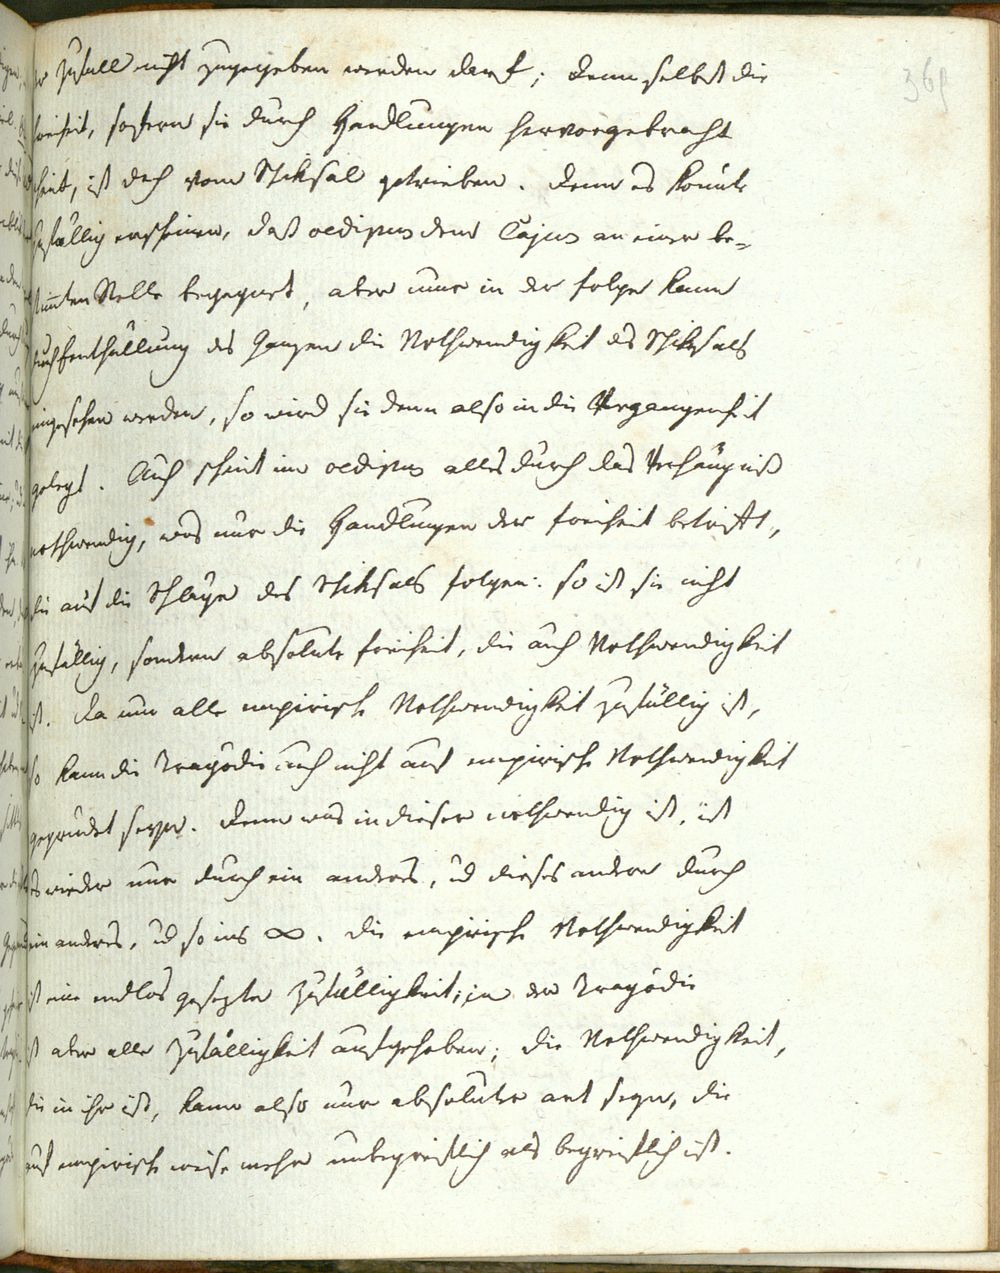 369
Zufall nicht zugegeben werden darf; denn selbst die
Freiheit, sofern sie durch Handlungen hervorgebracht
scheint, ist doch vom Schiksal getrieben. Denn es könnte
zufällig erscheinen, daß oedipus dem Lajus an einer be-
stim̅ten Stelle begegnet, aber nur in der folge kann
durch Enthüllung des Ganzen die Nothwendigkeit des Schiksals
eingesehen werden, so wird sie denn also in die Vergangenheit
gelegt. Auch scheint im oedipus alles durch das Verhängniß
nothwendig, was nur die Handlungen der freiheit betrifft,
die auf die Schläge des Schiksals folgen: so ist sie nicht
zufällig, sondern absolute freiheit, die auch Nothwendigkeit
ist. Da nun alle empirische Nothwendigkeit zufällig ist,
so kann die Tragödie auch nicht auf empirische Nothwendigkeit
gegründet seyn. Denn was in dieser nothwendig ist, ist
es wieder nur durch ein anderes, ud dieses andere durch
ein anderes, ud so ins ∞. Die empirische Nothwendigkeit
ist eine endlos gesezte Zufälligkeit; in der Tragödie
ist aber alle Zufälligkeit aufgehoben; die Nothwendigkeit,
die in ihr ist, kann also nur absoluter art seyn, die
auf empirische weise mehr unbegreiflich als begreiflich ist.